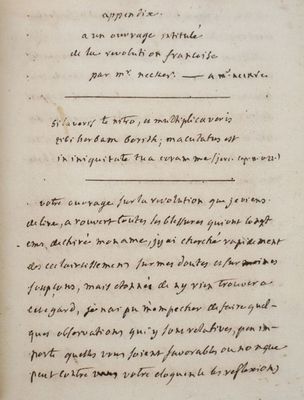 appendix.
a un ouvrage intitulé
de la revolution francoise
par mr. necker. — a mr. necker
si laveris te nitro, et multiplicaveris
tibi herbam borith; maculatus est
in iniquitate tua coram me (jere. cap. 2. v. 22)
votre ouvrage sur la revolution que je viens
de lire, a rouvert toutes les blessures qui ont longt
ems, dechiré mon ame, j'y ai cherché rapidement
des eclaircissemens sur mes doutes et sur moins
soupçons, mais etonnée de n'y rien trouver a
cet egard, je n'ai pu m'empecher de faire quel-
ques observations qui y sont relatives, peu im-
porte quelles vous soient favorables ou non que
peut contre vous votre eloquente les reflexions